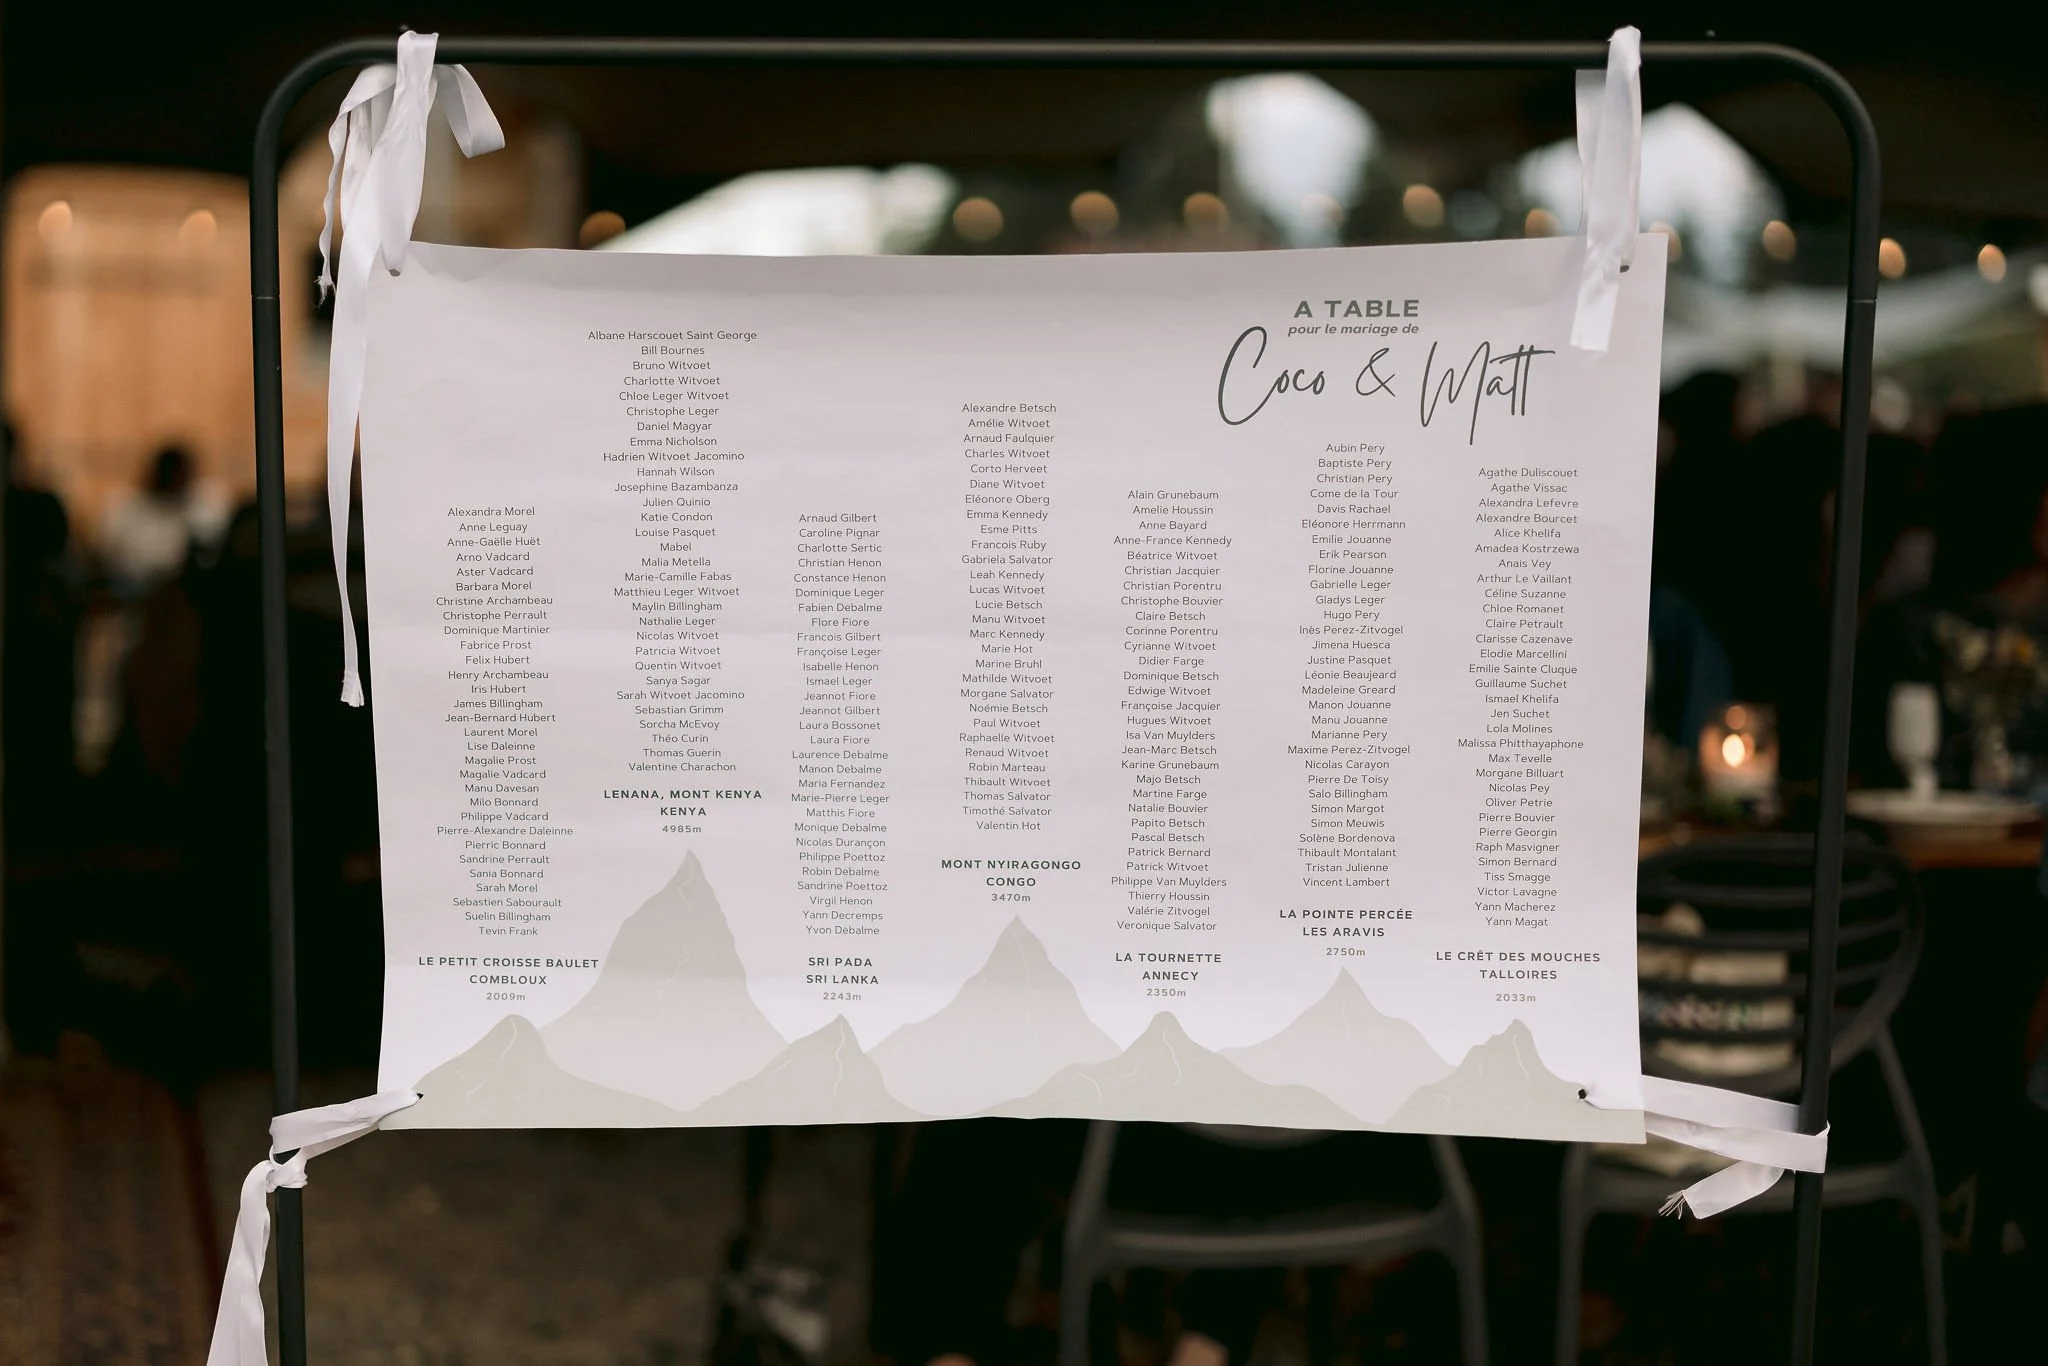 A TABLE
pour le mariage de
Coco & Matt
Alexandra Morel
Anne Leguay
Anne-Gaëlle Huët
Arno Vadcard
Aster Vadcard
Barbara Morel
Christine Archambeau
Christophe Perrault
Dominique Martinier
Fabrice Prost
Felix Hubert
Henry Archambeau
Iris Hubert
James Billingham
Jean-Bernard Hubert
Laurent Morel
Lise Daleinne
Magalie Prost
Magalie Vadcard
Manu Davesan
Milo Bonnard
Philippe Vadcard
Pierre-Alexandre Daleinne
Pierric Bonnard
Sandrine Perrault
Sania Bonnard
Sarah Morel
Sebastien Sabourault
Suelin Billingham
Tevin Frank
LE PETIT CROISSE BAULET
COMBLOUX
2009m
Albane Harscouet Saint George
Bill Bournes
Bruno Witvoet
Charlotte Witvoet
Chloe Leger Witvoet
Christophe Leger
Daniel Magyar
Emma Nicholson
Hadrien Witvoet Jacomino
Hannah Wilson
Josephine Bazambanza
Julien Quinio
Katie Condon
Louise Pasquet
Mabel
Malia Metella
Marie-Camille Fabas
Matthieu Leger Witvoet
Maylin Billingham
Nathalie Leger
Nicolas Witvoet
Patricia Witvoet
Quentin Witvoet
Sanya Sagar
Sarah Witvoet Jacomino
Sebastian Grimm
Sorcha McEvoy
Théo Curin
Thomas Guerin
Valentine Charachon
LENANA, MONT KENYA
KENYA
4985m
Arnaud Gilbert
Caroline Pignar
Charlotte Sertic
Christian Henon
Constance Henon
Dominique Leger
Fabien Debalme
Flore Fiore
Francois Gilbert
Françoise Leger
Isabelle Henon
Ismael Leger
Jeannot Fiore
Jeannot Gilbert
Laura Bossonet
Laura Fiore
Laurence Debalme
Manon Debalme
Maria Fernandez
Marie-Pierre Leger
Matthis Fiore
Monique Debalme
Nicolas Durançon
Philippe Poettoz
Robin Debalme
Sandrine Poettoz
Virgil Henon
Yann Decremps
Yvon Debalme
SRI PADA
SRI LANKA
2243m
Alexandre Betsch
Amélie Witvoet
Arnaud Faulquier
Charles Witvoet
Corto Herveet
Diane Witvoet
Eléonore Oberg
Emma Kennedy
Esme Pitts
Francois Ruby
Gabriela Salvator
Leah Kennedy
Lucas Witvoet
Lucie Betsch
Manu Witvoet
Marc Kennedy
Marie Hot
Marine Bruhl
Mathilde Witvoet
Morgane Salvator
Noémie Betsch
Paul Witvoet
Raphaelle Witvoet
Renaud Witvoet
Robin Marteau
Thibault Witvoet
Thomas Salvator
Timothé Salvator
Valentin Hot
MONT NYIRAGONGO
CONGO
3470m
Alain Grunebaum
Amelie Houssin
Anne Bayard
Anne-France Kennedy
Béatrice Witvoet
Christian Jacquier
Christian Porentru
Christophe Bouvier
Claire Betsch
Corinne Porentru
Cyrianne Witvoet
Didier Farge
Dominique Betsch
Edwige Witvoet
Françoise Jacquier
Hugues Witvoet
Isa Van Muylders
Jean-Marc Betsch
Karine Grunebaum
Majo Betsch
Martine Farge
Natalie Bouvier
Papito Betsch
Pascal Betsch
Patrick Bernard
Patrick Witvoet
Philippe Van Muylders
Thierry Houssin
Valérie Zitvogel
Veronique Salvator
LA TOURNETTE
ANNECY
2350m
Aubin Pery
Baptiste Pery
Christian Pery
Come de la Tour
Davis Rachael
Eléonore Herrmann
Emilie Jouanne
Erik Pearson
Florine Jouanne
Gabrielle Leger
Gladys Leger
Hugo Pery
Inès Perez-Zitvogel
Jimena Huesca
Justine Pasquet
Léonie Beaujeard
Madeleine Greard
Manon Jouanne
Manu Jouanne
Marianne Pery
Maxime Perez-Zitvogel
Nicolas Carayon
Pierre De Toisy
Salo Billingham
Simon Margot
Simon Meuwis
Solène Bordenova
Thibault Montalant
Tristan Julienne
Vincent Lambert
LA POINTE PERCÉE
LES ARAVIS
2750m
Agathe Duliscouet
Agathe Vissac
Alexandra Lefevre
Alexandre Bourcet
Alice Khelifa
Amadea Kostrzewa
Anais Vey
Arthur Le Vaillant
Céline Suzanne
Chloe Romanet
Claire Petrault
Clarisse Cazenave
Elodie Marcellini
Emilie Sainte Cluque
Guillaume Suchet
Ismael Khelifa
Jen Suchet
Lola Molines
Malissa Phitthayaphone
Max Tevelle
Morgane Billuart
Nicolas Pey
Oliver Petrie
Pierre Bouvier
Pierre Georgin
Raph Masvigner
Simon Bernard
Tiss Smagge
Victor Lavagne
Yann Macherez
Yann Magat
LE CRÊT DES MOUCHES
TALLOIRES
2033m